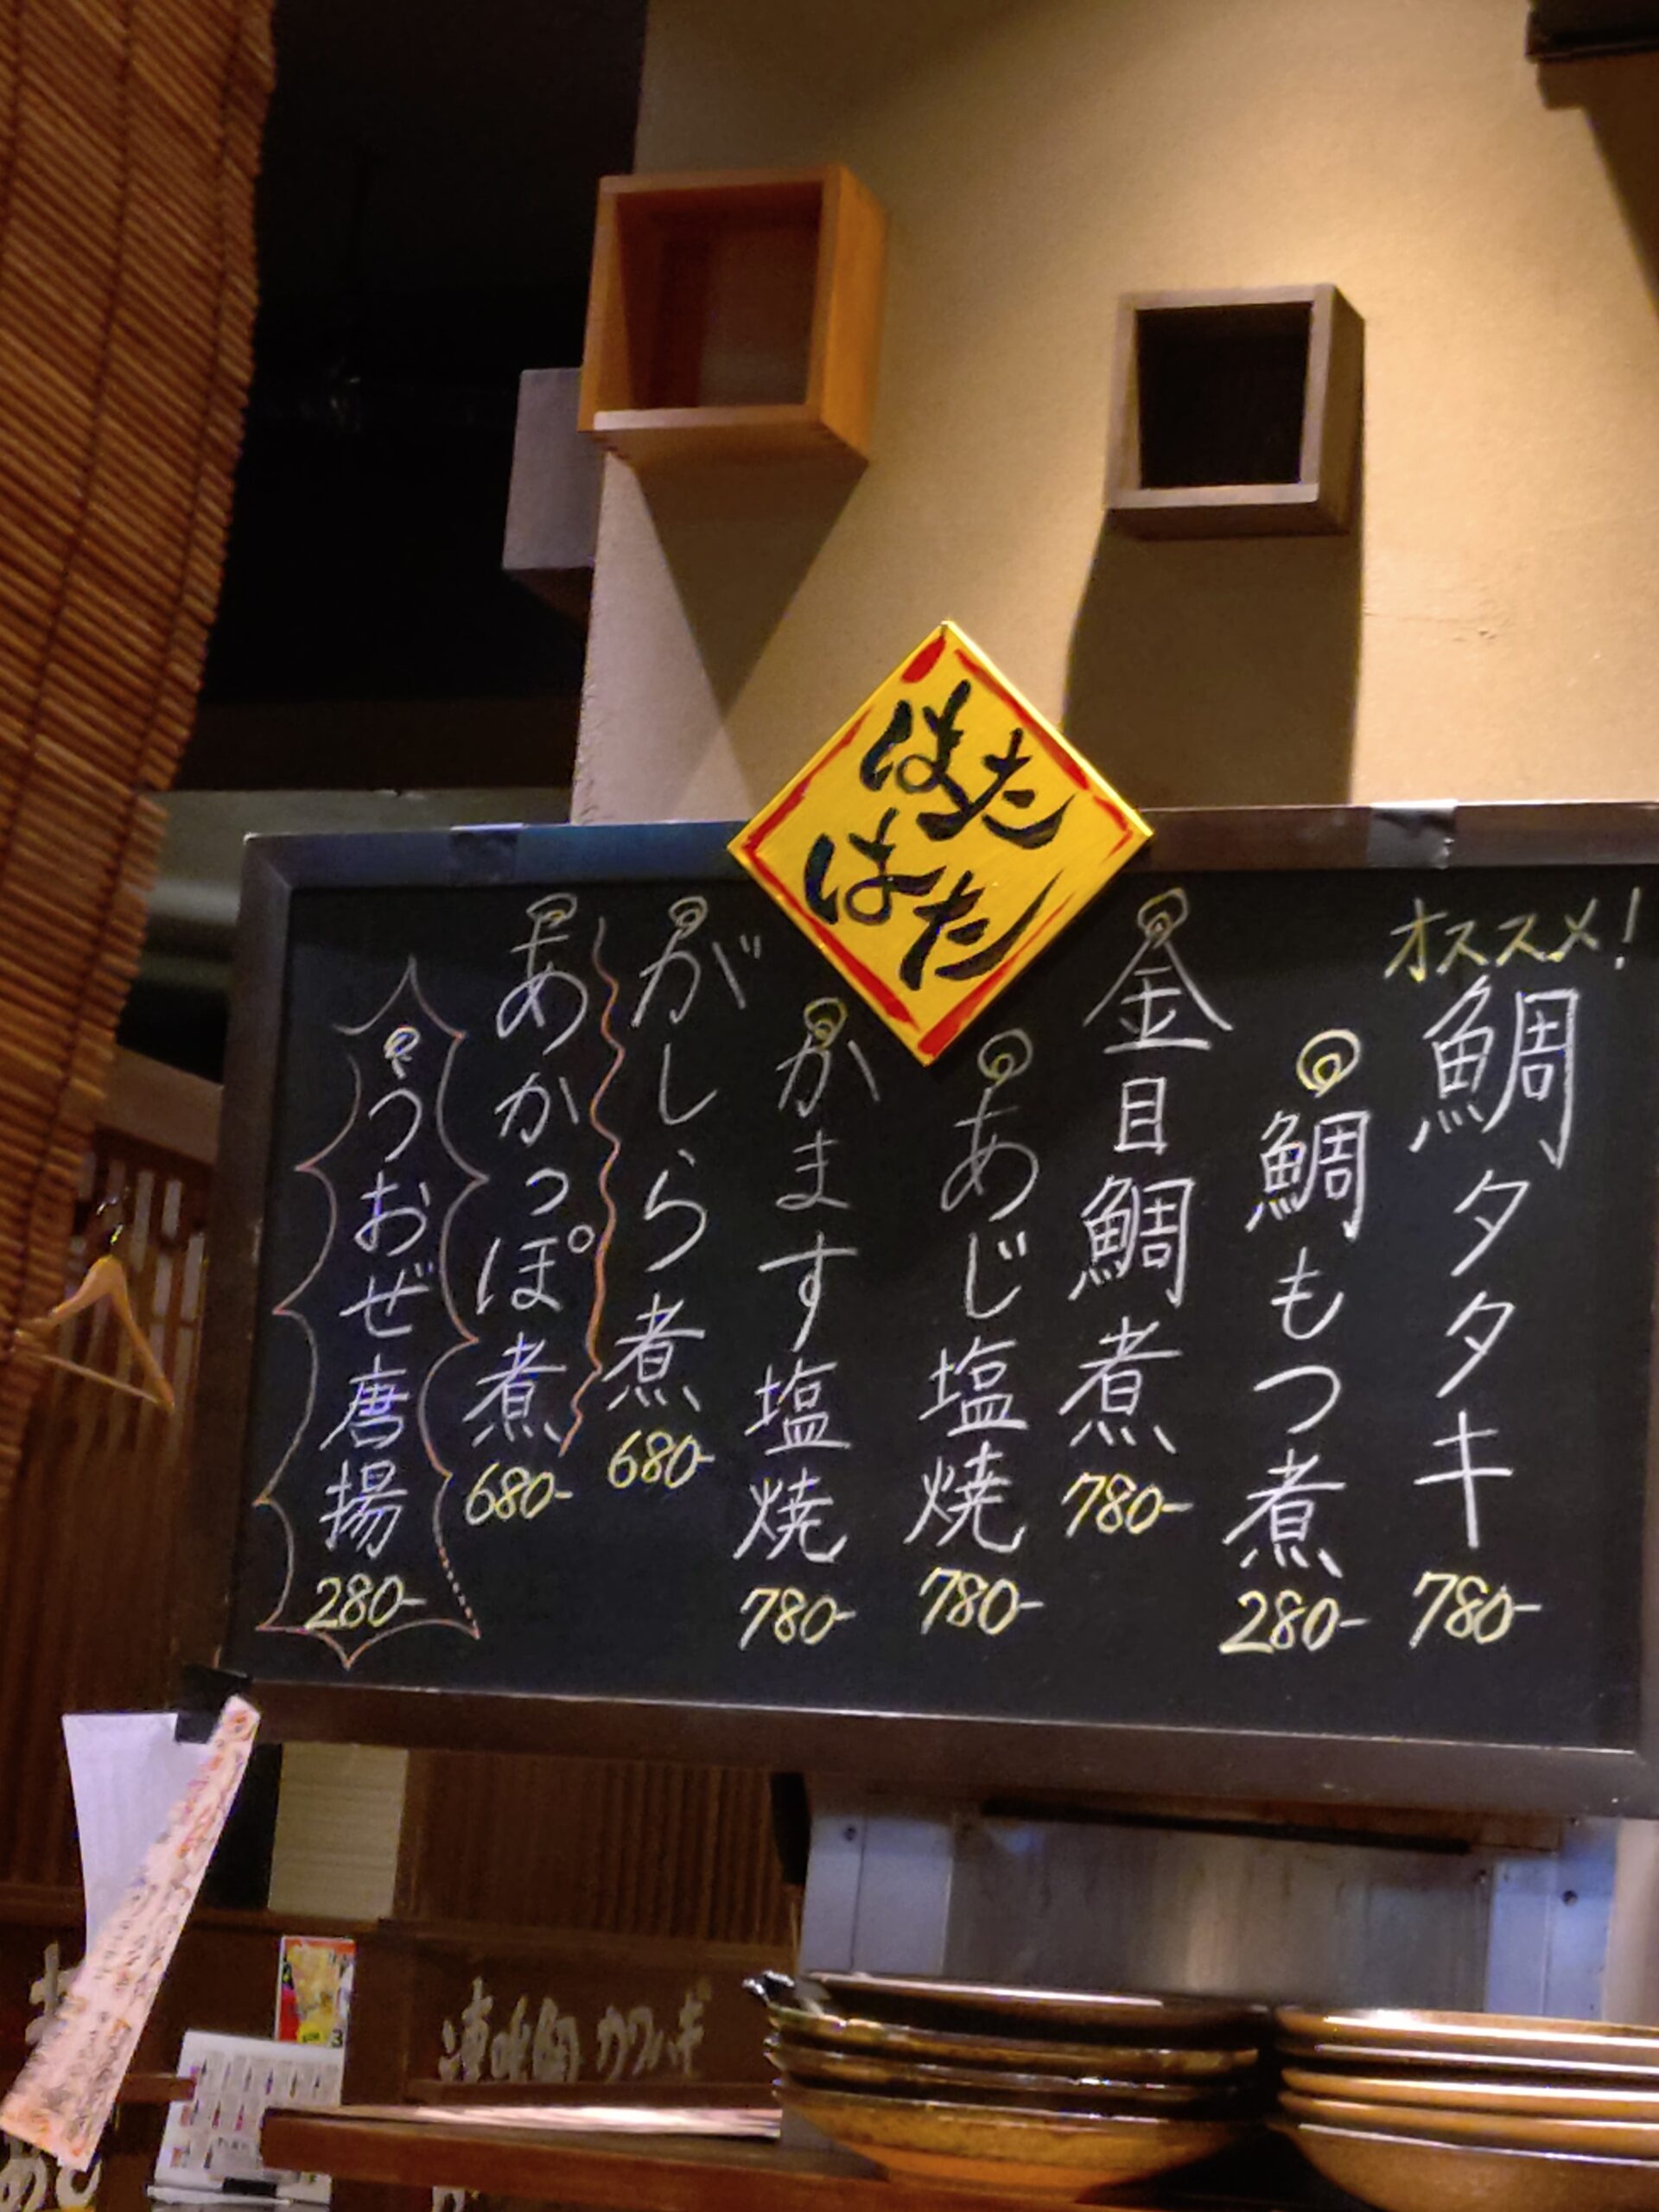 はた
はた
オススメ!
鯛タタキ
780-
鯛もつ煮
280-
金目鯛煮
780-
あじ塩焼
780-
かます塩焼
780-
がしら煮
680-
あかっぽ煮
680-
うおぜ唐揚
280-